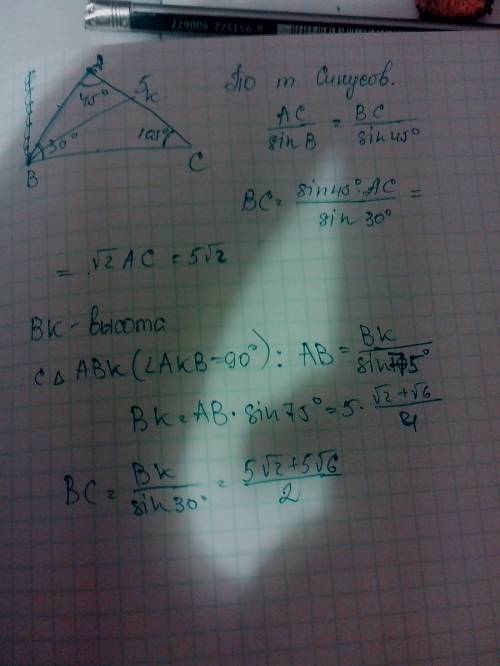 По т. Синусов.
45°
5
K
30°
105°
B
C
AC/sin B = BC/sin 45°
BC = sin 45° · AC/sin 30° =
= √2 AC = 5√2
BK - высота
С △ ABK (∠AKB = 90°): AB = BK/sin 75°
BK = AB · sin 75° = 5 · √2 + √6/4
BC = BK/sin 30° = 5√2 + 5√6/2